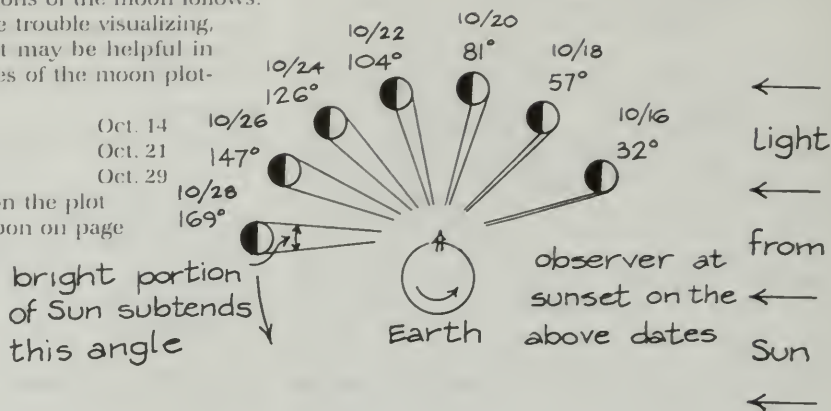 ons of the moon follows.
e trouble visualizing,
t may be helpful in
es of the moon plot-
Oct. 14
Oct. 21
Oct. 29
n the plot
oon on page
10/28
169°
10/26
147°
10/24
126°
10/22
104°
10/20
81°
10/18
57°
10/16
32°
bright portion
of Sun subtends
this angle
Earth
observer at
sunset on the
above dates
Light
from
Sun